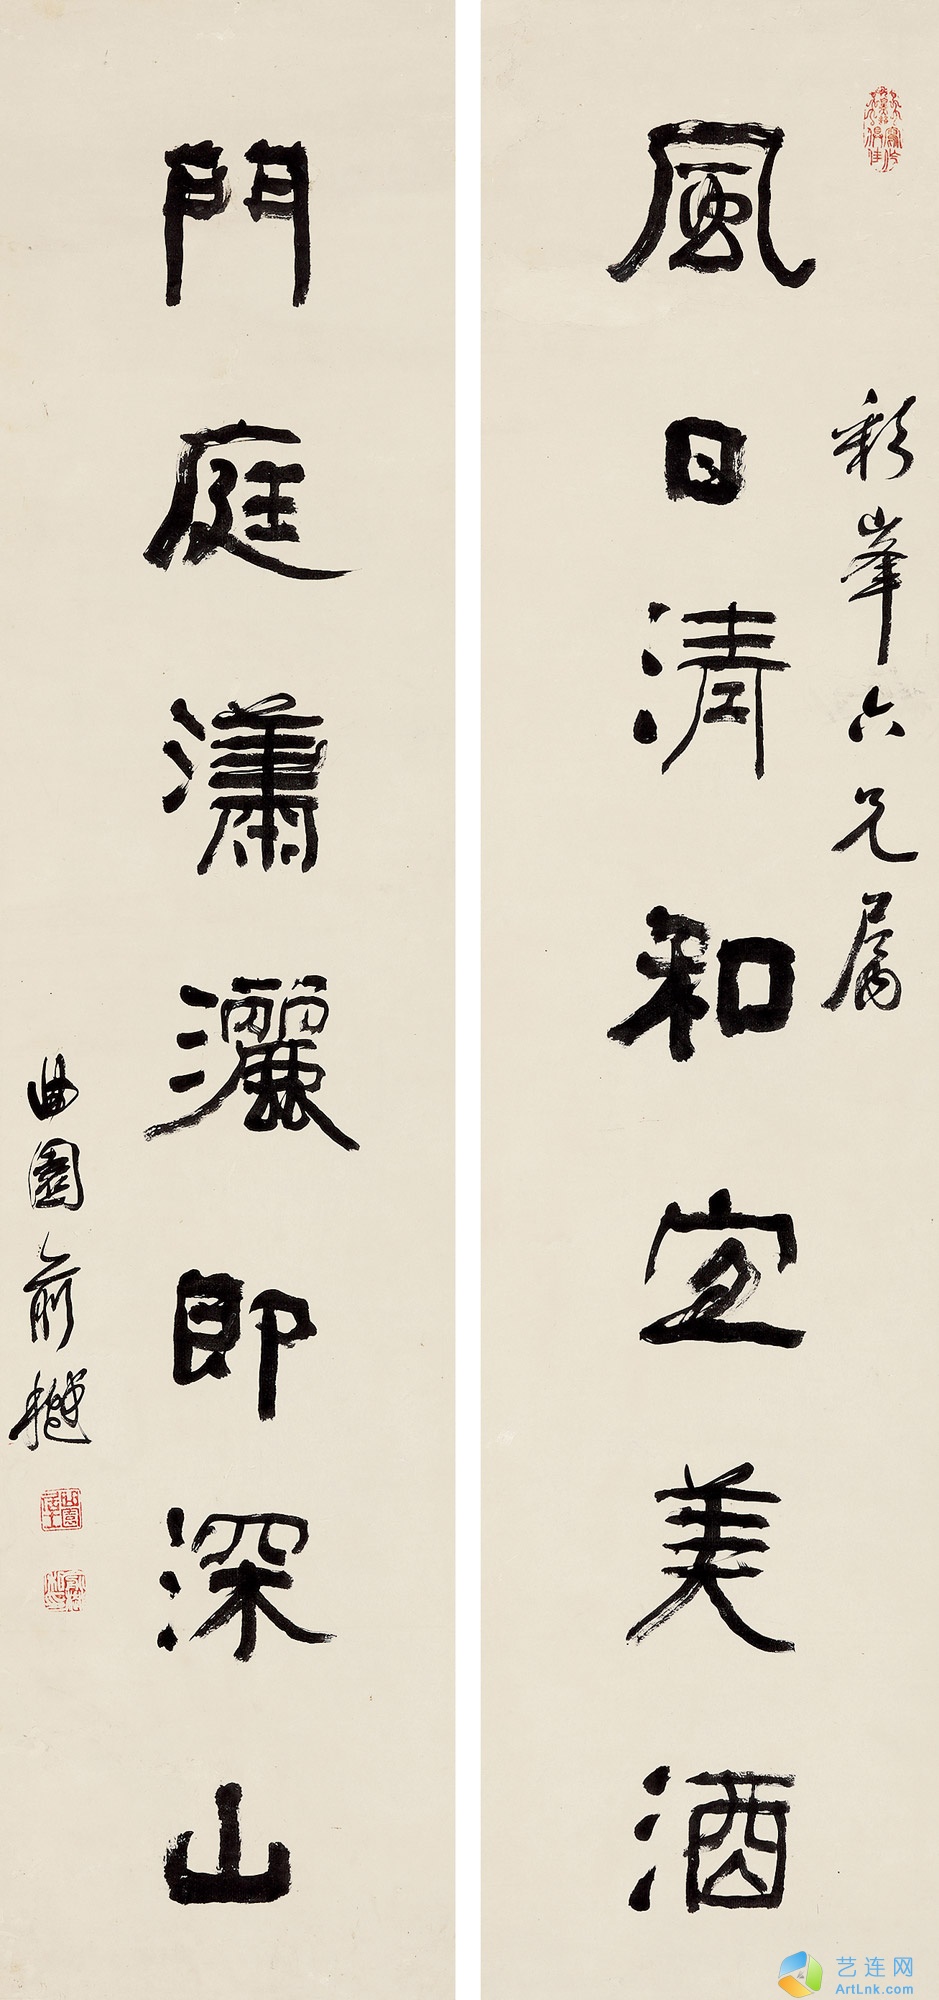 彩峯六兄屬
風日清和宜美酒
門庭瀟灑即深山
曲園俞樾
艺连网
ArtLnk.com